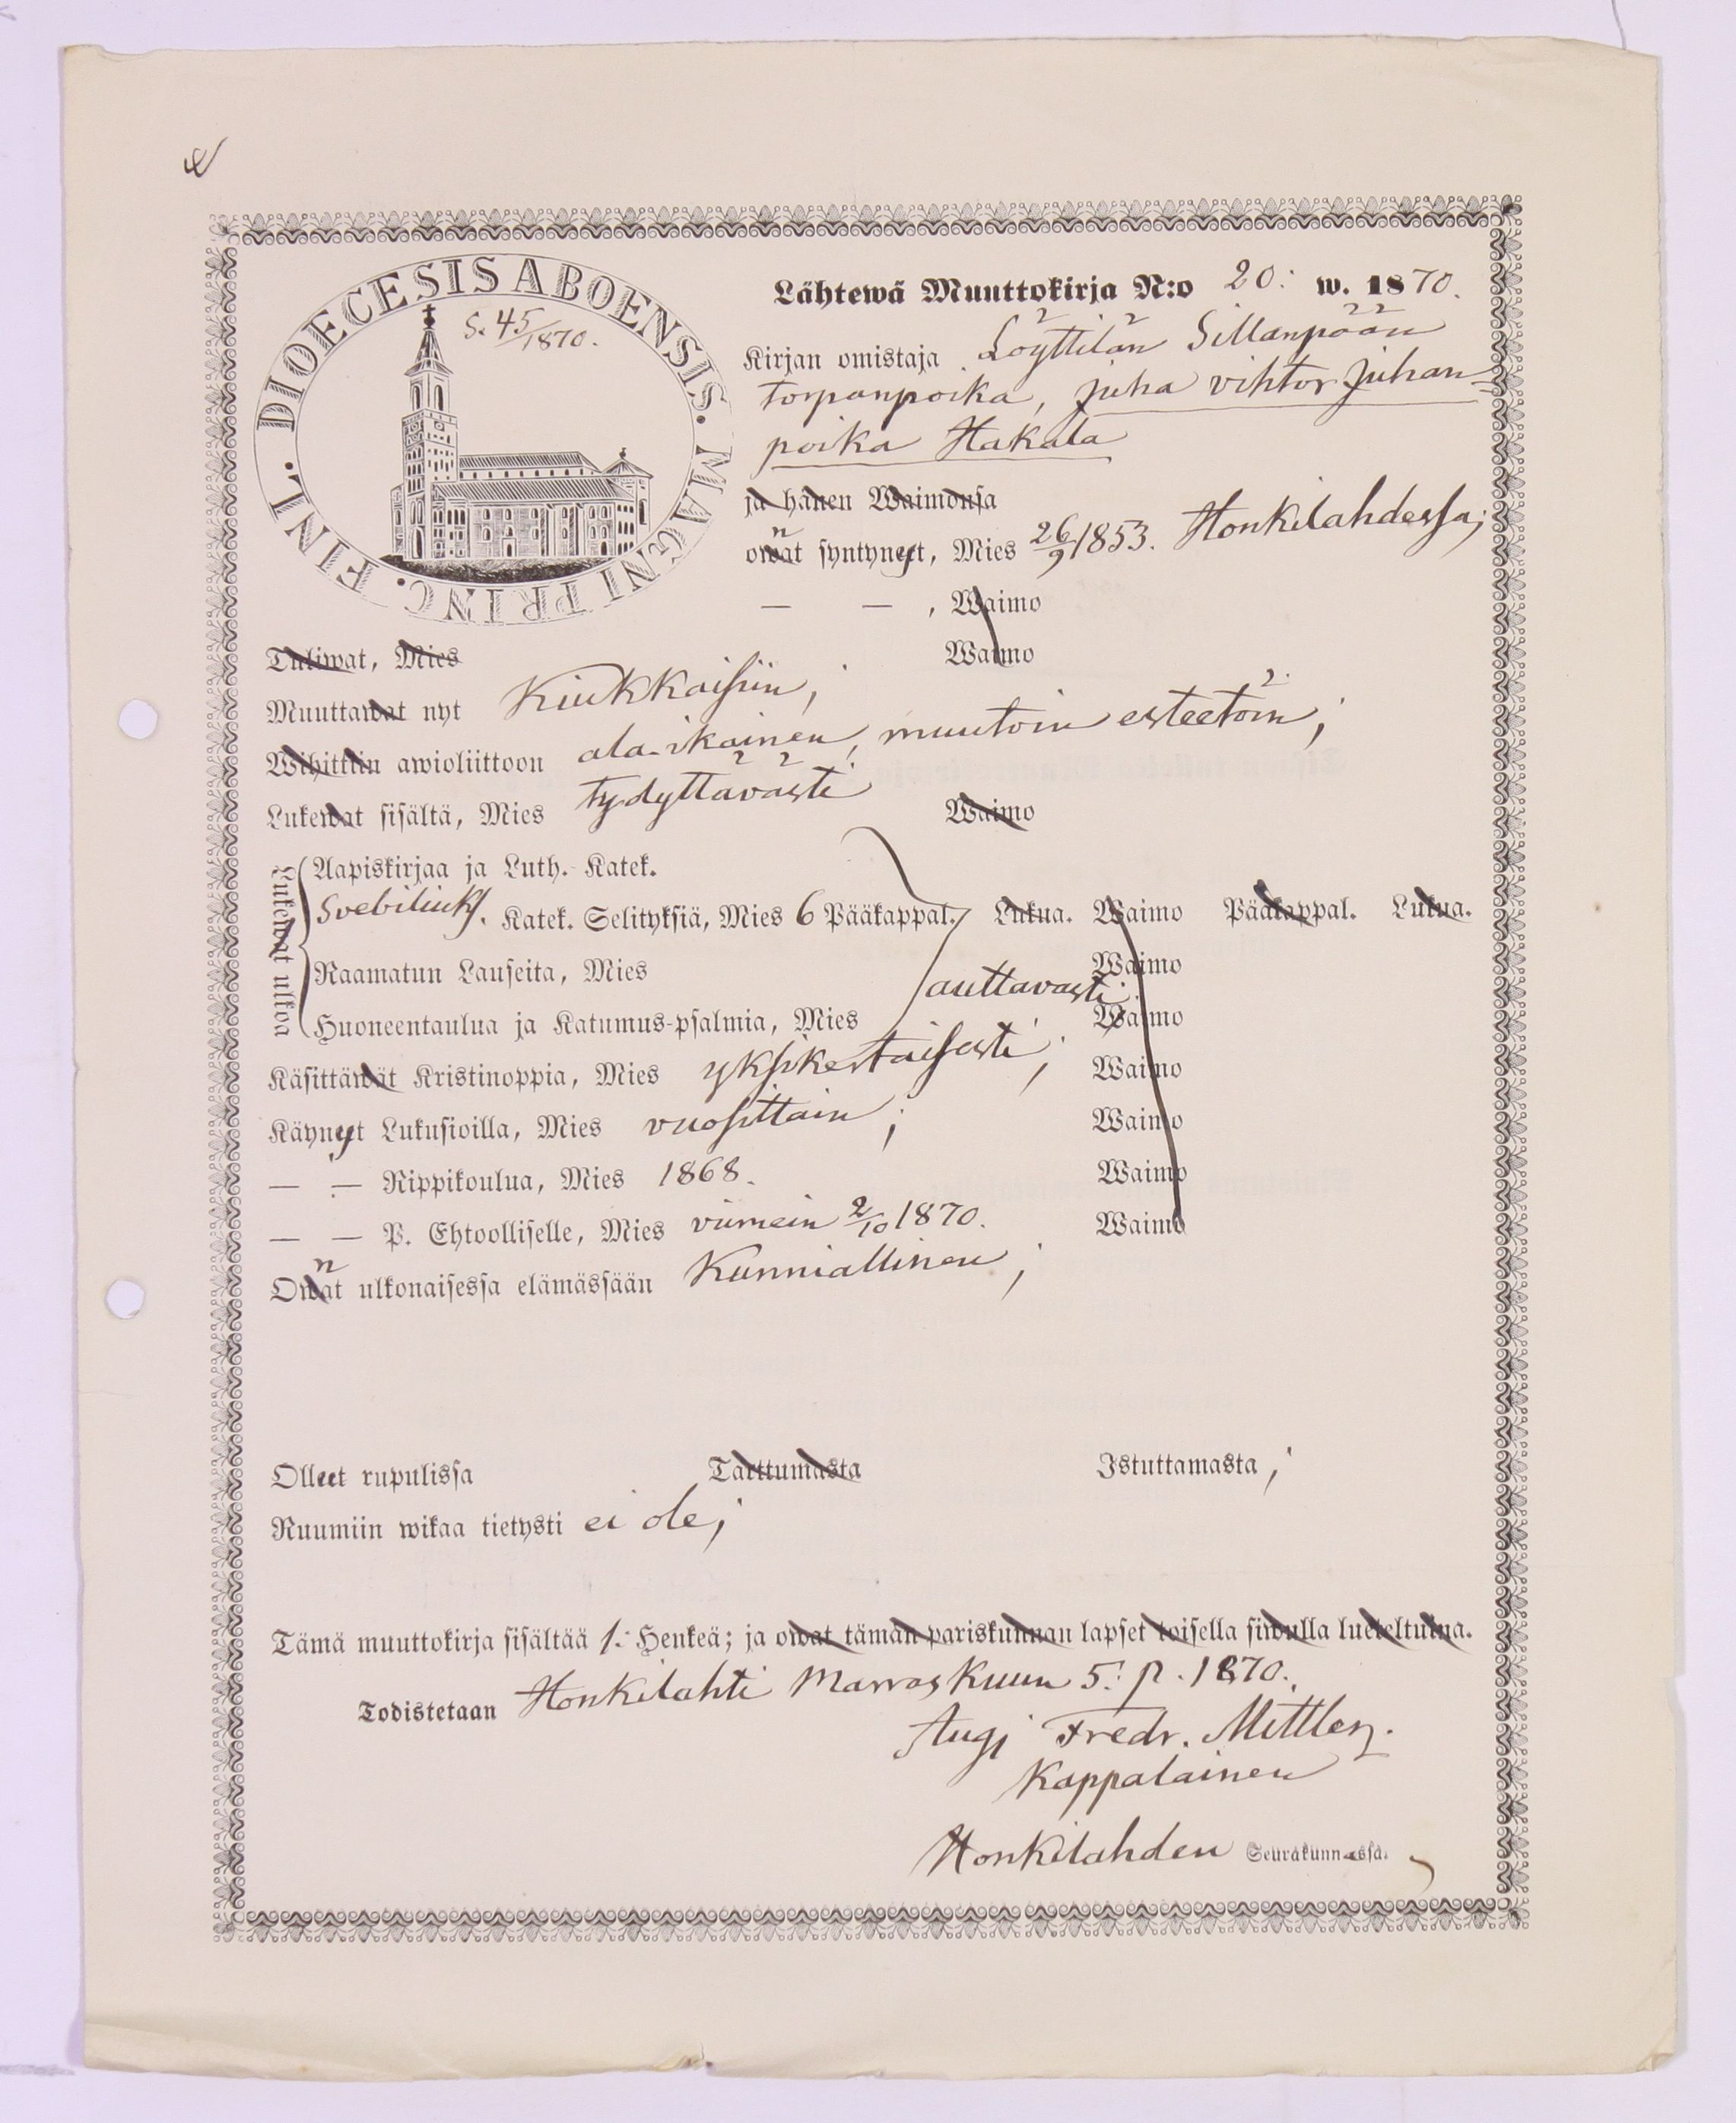 DIOECESIS ABOENSIS. MAGNI PRINC. FINL.
S. 45/1870.
Lähtewä Muuttokirja N:o 20. w. 1870.
Kirjan omistaja Löyttilän Sillanpään
torpanpoika, Juha Vihtor Juhan-
poika Hakala
ja hänen Waimonsa
owat syntyneet, Mies 26/9 1853. Honkilahdessa;
— — , Waimo
Tuliwat, Mies Waimo
Muuttawat nyt Kiukkaisiin,
Wihittiin awioliittoon ala-ikäinen, muutoin esteetöin;
Lukewat sisältä, Mies tydyttävästi Waimo
Lukewat ulkoa
Aapiskirjaa ja Luth. Katek.
Svebiliuks. Katek. Selityksiä, Mies 6 Pääkappal. Lukua. Waimo Pääkappal. Lukua.
Raamatun Lauseita, Mies Waimo
auttavasti;
Huoneentaulua ja Katumus-psalmia, Mies Waimo
Käsittäwät Kristinoppia, Mies yksikertaisesti; Waimo
Käynyt Lukusioilla, Mies vuosittain; Waimo
— — Rippikoulua, Mies 1868. Waimo
— — P. Ehtoolliselle, Mies viimein 2/10 1870. Waimo
Owat ulkonaisessa elämässään Kunniallinen;
Olleet rupulissa Tarttumasta Istuttamasta;
Ruumiin wikaa tietysti ei ole;
Tämä muuttokirja sisältää 1. Henkeä; ja owat tämän pariskunnan lapset toisella siwulla lueteltuina.
Todistetaan Honkilahti Marraskuun 5. p. 1870.
Fredr. Mittler.
Kappalainen
Honkilahden Seurakunnassa.